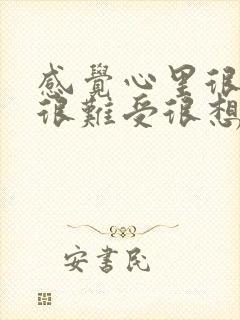 感覺心里很
很難受很想
安書民